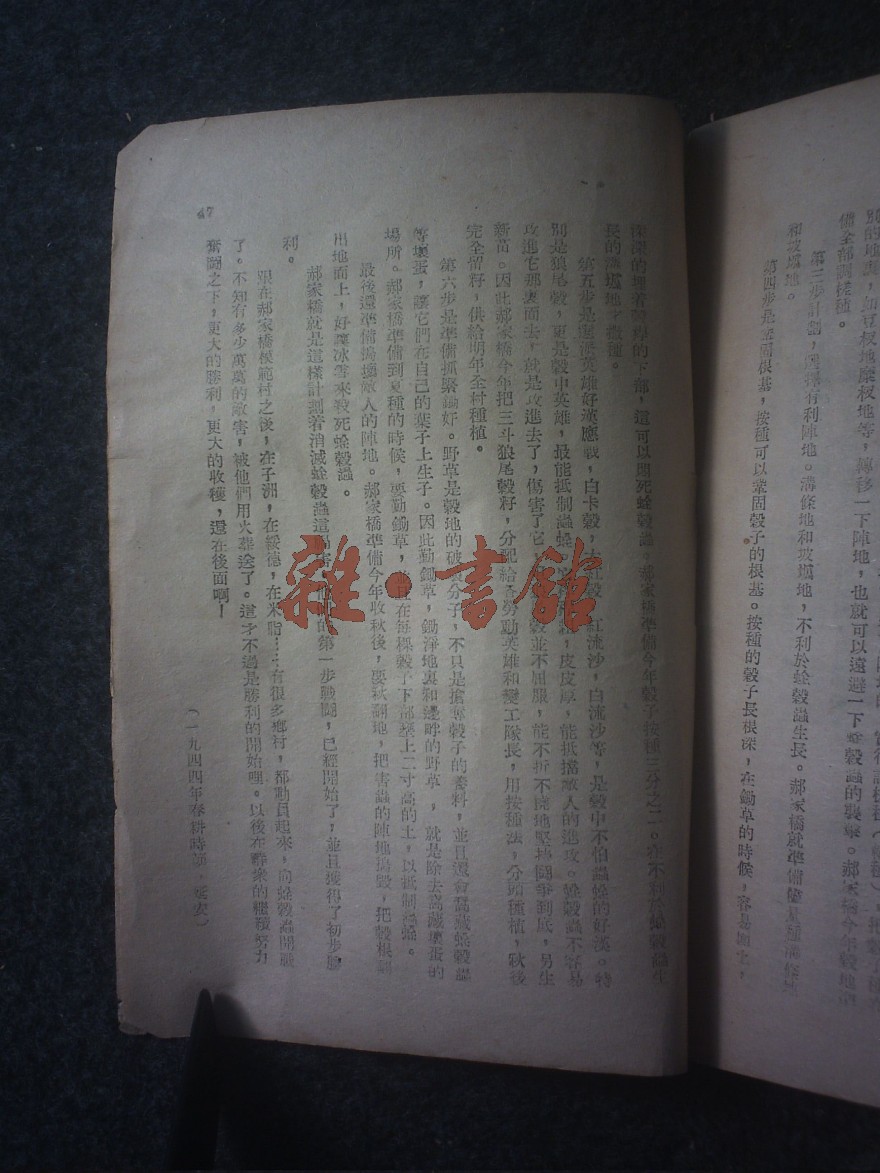 別的地裏，如豆杈地糜杈地等，轉移一下陣地，也就可以遠避一下蛀穀蟲的襲擊。郝家橋今年穀地準
備全部調樣種。
第三步計劃，選擇有利陣地。溝條地和坡墕地，不利於蛀穀蟲生長。郝家橋就準備儘量種溝條地
和坡墕地。
第四步是鞏固根基，按種可以鞏固穀子的根基。按種的穀子長根深，在鋤草的時候，容易
深深的埋着穀子的下部，這可以悶死蛀穀蟲。郝家橋準備今年穀子按種三分之二。在不利於蛀穀蟲生
長的地按種。
第五步是選派英雄好漢應戰，白卡穀，大紅穀，紅流沙，白流沙等，是穀中不怕蟲蛀的好漢。特
別是狼尾穀，更是穀中英雄，最能抵制蟲蛀。皮皮厚，能抵擋敵人的進攻。蛀穀蟲不容易
攻進它那裏面去，就是攻進去了，傷害了它，穀並不屈服，能不折不撓地堅持鬪爭到底，另生
新苗。因此郝家橋今年把三斗狼尾穀籽，分配給各勞動英雄和變工隊長，用按種法，分頭種植，秋後
完全留籽，供給明年全村種植。
第六步是準備抓緊鋤奸。野草是穀地的破壞分子，不只是搶奪穀子的養料，並且還會窩藏蛀穀蟲
等壞蛋，讓它們在自己的葉子上生子。因此勤鋤草，鋤淨地裏和邊畔的野草，就是除去窩藏壞蛋的
場所。郝家橋準備到夏種的時候，要勤鋤草，並且在每棵穀子下部壅上二寸高的土，以抵制蟲蛀。
最後還準備搗壞敵人的陣地。郝家橋準備今年收秋後，要秋翻地，把害蟲的陣地搗毀，把穀根翻
出地面上，好讓冰雪來殺死蛀穀蟲。
郝家橋就是這樣計劃着消滅蛀穀蟲這禍害。他們的第一步戰鬪，已經開始了，並且獲得了初步勝
利。
跟在郝家橋模範村之後，在子洲，在綏德，在米脂……有很多鄉村，都動員起來，向蛀穀蟲開戰
了。不知有多少萬萬的敵害，被他們用火葬送了。這才不過是勝利的開始哩。以後在羣衆的繼續努力
奮鬪之下，更大的勝利，更大的收穫，還在後面啊！
（一九四四年春耕時寫，延安）
47
雜·書館